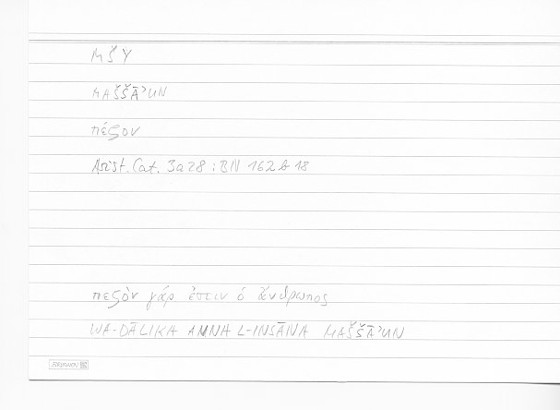 MŠY
MAŠŠĀʾUN
πέζον
Arist. Cat. 3a28 : BN 162b 18
πεζὸν γάρ ἐστιν ὁ ἄνθρωπος
WA-ḎĀLIKA ANNA L-INSĀNA MAŠŠĀʾUN